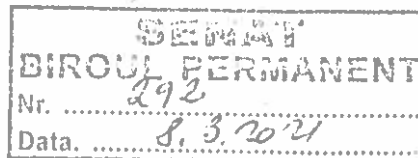 SENAT
BIROUL PERMANENT
Nr. ..... 292 .....
Data. ..... 8.3.2021